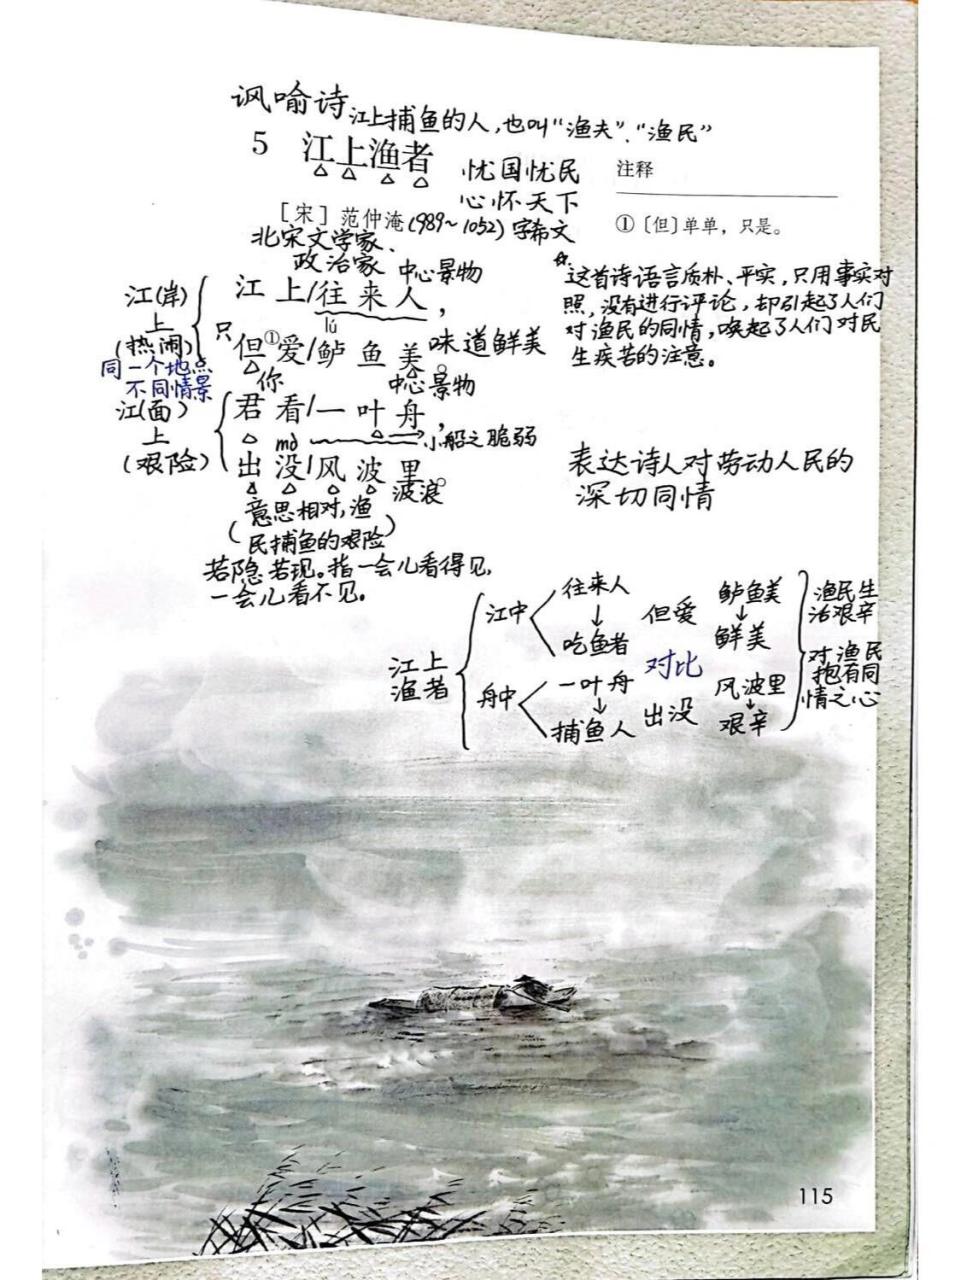 讽喻诗
江上捕鱼的人，也叫“渔夫”、“渔民”
5 江上渔者
忧国忧民
心怀天下
注释
[宋] 范仲淹(989~1052) 字希文
①〔但〕单单，只是。
北宋文学家、
政治家
中心景物
江上/往来人，
lú
只
但①爱/鲈鱼美。
味道鲜美
江(岸)
上
(热闹)
同一个地点
不同情景
你
中心景物
君看/一叶舟，
小船之脆弱
mò
出没/风波里。
波浪
江(面)
上
(艰险)
(意思相对，渔
民捕鱼的艰险)
若隐若现。指一会儿看得见，
一会儿看不见。
☆这首诗语言质朴、平实，只用事实对
照，没有进行评论，却引起了人们
对渔民的同情，唤起了人们对民
生疾苦的注意。
表达诗人对劳动人民的
深切同情
江上
渔者
江中
往来人
↓
吃鱼者
但爱
鲈鱼美
↓
鲜美
对比
舟中
一叶舟
↓
捕鱼人
出没
风波里
↓
艰辛
渔民生
活艰辛
对渔民
抱有同
情之心
115